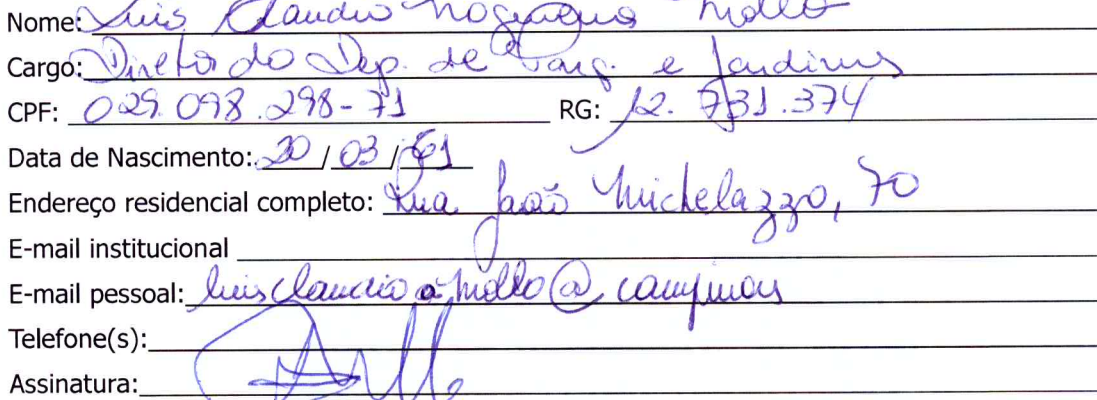 Nome: Luis Claudio Nogueira Mollo
Cargo: Diretor do Dep. de Parq. e Jardins
CPF: 029.098.298-71 RG: 12.731.374
Data de Nascimento: 20/03/61
Endereço residencial completo: Rua João Michelazzo, 70
E-mail institucional
E-mail pessoal: luisclaudio mollo@campinas
Telefone(s):
Assinatura: